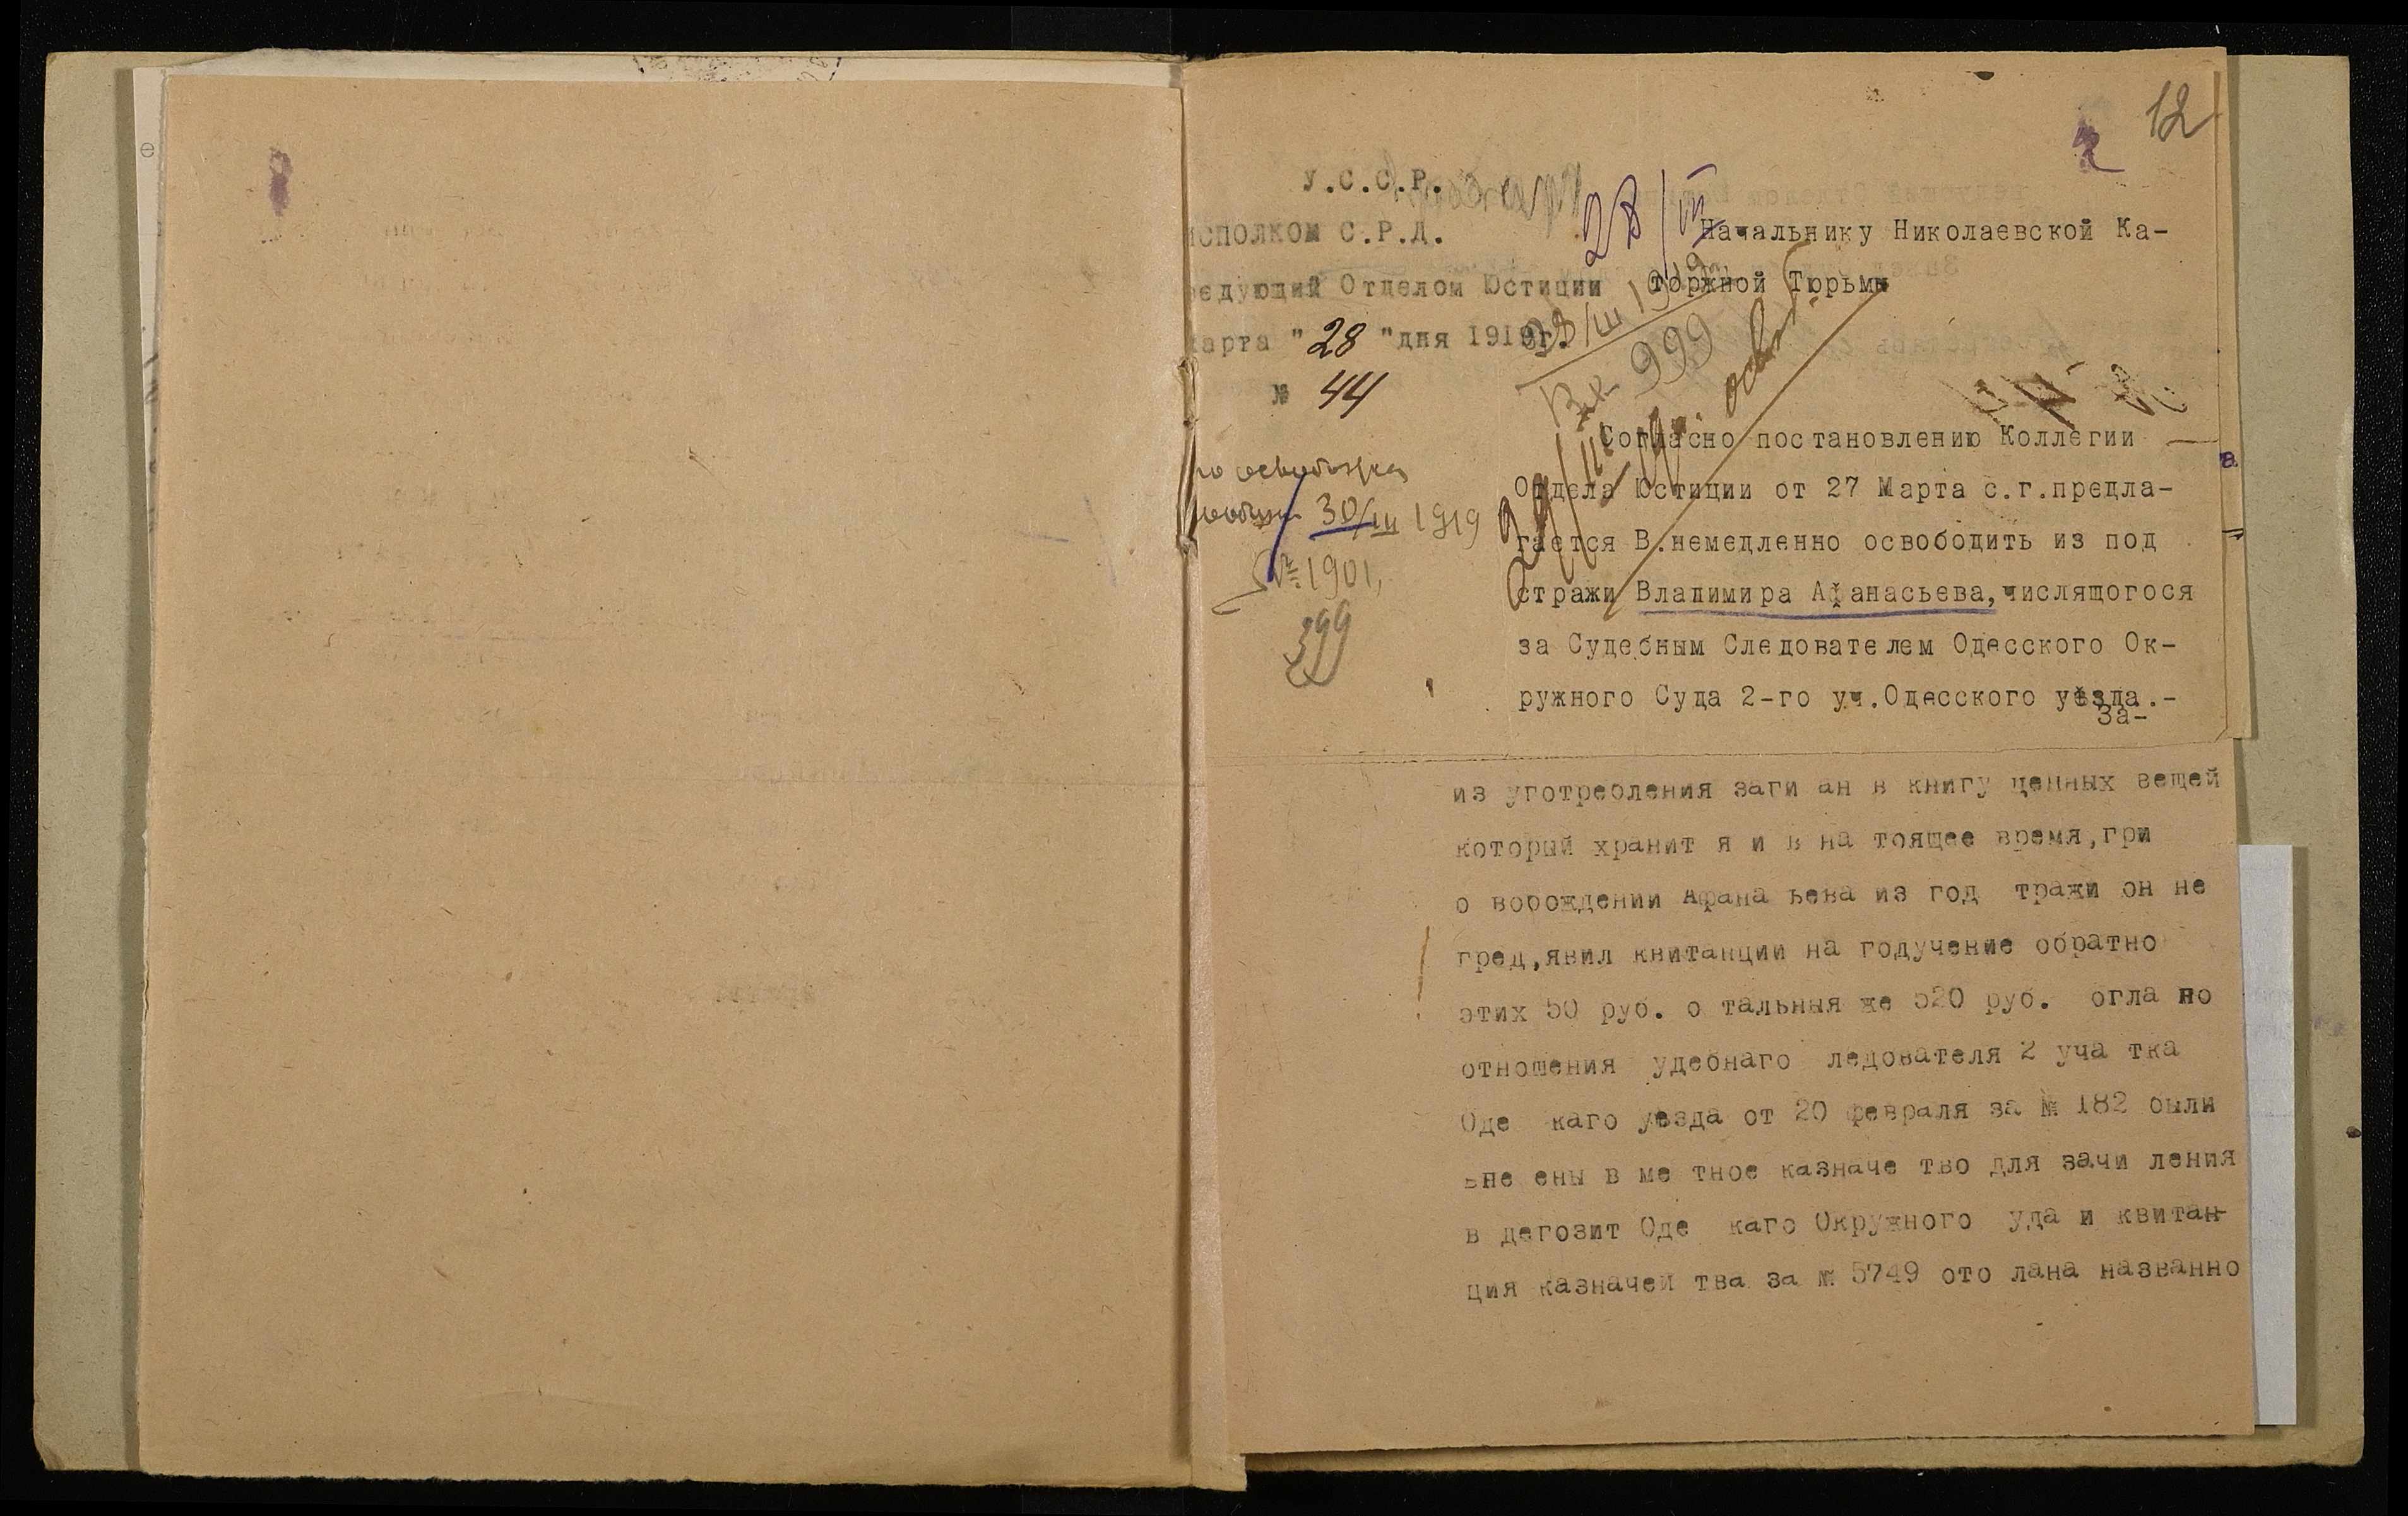 12
У.С.С.Р.
ИСПОЛКОМ С.Р.Д.
ведующий Отделом Юстиции
марта "28" дня 1919г.
№ 44
28/III
Начальнику Николаевской Ка-
торжной Тюрьмы
28/III 1919
Вх. 999
29/III-19г. освоб.
30/III 1919
№ 1901,
399
Согласно постановлению Коллегии
Отдела Юстиции от 27 Марта с.г.предла-
гается В.немедленно освободить из под
стражи Владимира Афанасьева,числящогося
за Судебным Следователем Одесского Ок-
ружного Суда 2-го уч.Одесского уѣзда.-
За-
из уготребления заги ан в книгу ценных вещей
который хранит я и в на тоящее время,гри
о вобождении Афана ьева из год тражи он не
гред,явил квитанции на годучение обратно
этих 50 руб. о тальныя же 520 руб. огла но
отношения удебнаго ледователя 2 уча тка
Оде каго уезда от 20 февраля за № 182 были
вне ены в ме тное казначе тво для зачи ления
в дегозит Оде каго Окружного уда и квитан-
ция казначей тва за № 5749 ото лана названно
е